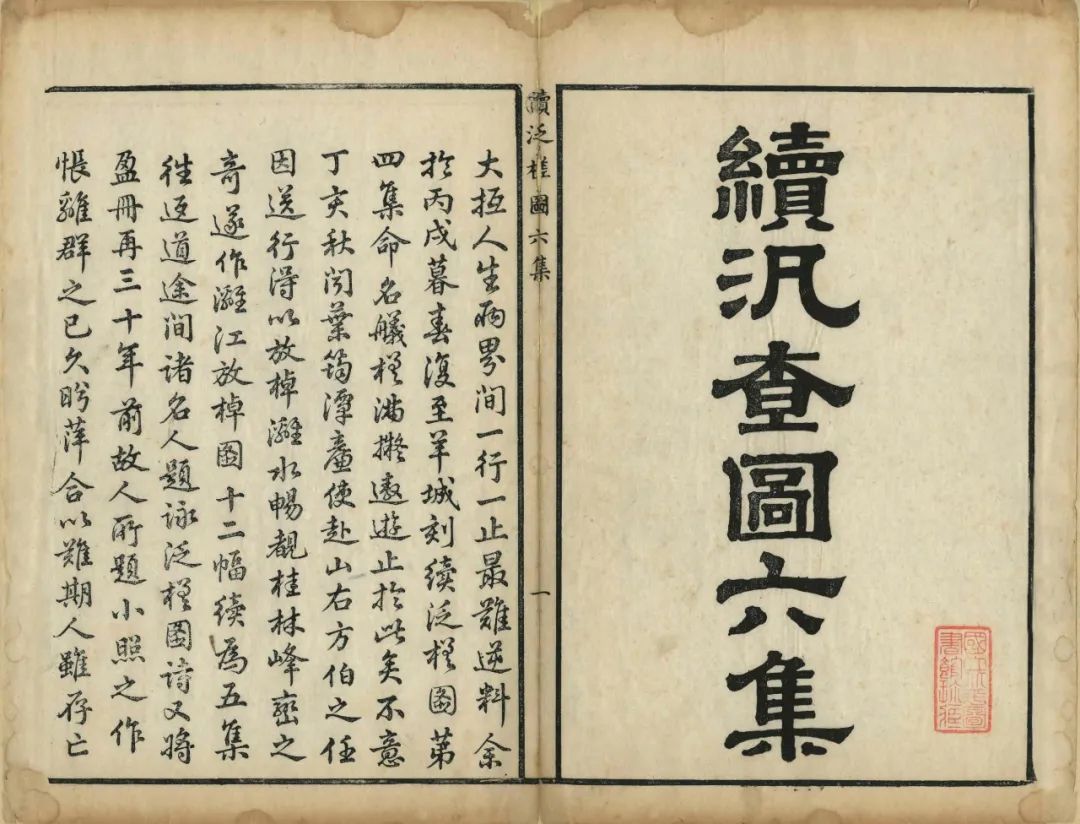 續汎查圖六集
續泛槎圖六集
一
大抵人生兩界間一行一止最難逆料余
於丙戌暮春復至羊城刻續泛槎圖第
四集命名艤槎滿擬遨遊止於此矣不意
丁亥秋間葉筠潭廉使赴山右方伯之任
因送行得以放棹灕水暢覩桂林峰巒之
奇遂作灕江放棹圖十二幅續為五集
徃返道途間諸名人題詠泛槎圖詩又將
盈冊再三十年前故人所題小照之作
悵離群之已久盼萍合以難期人雖存亡